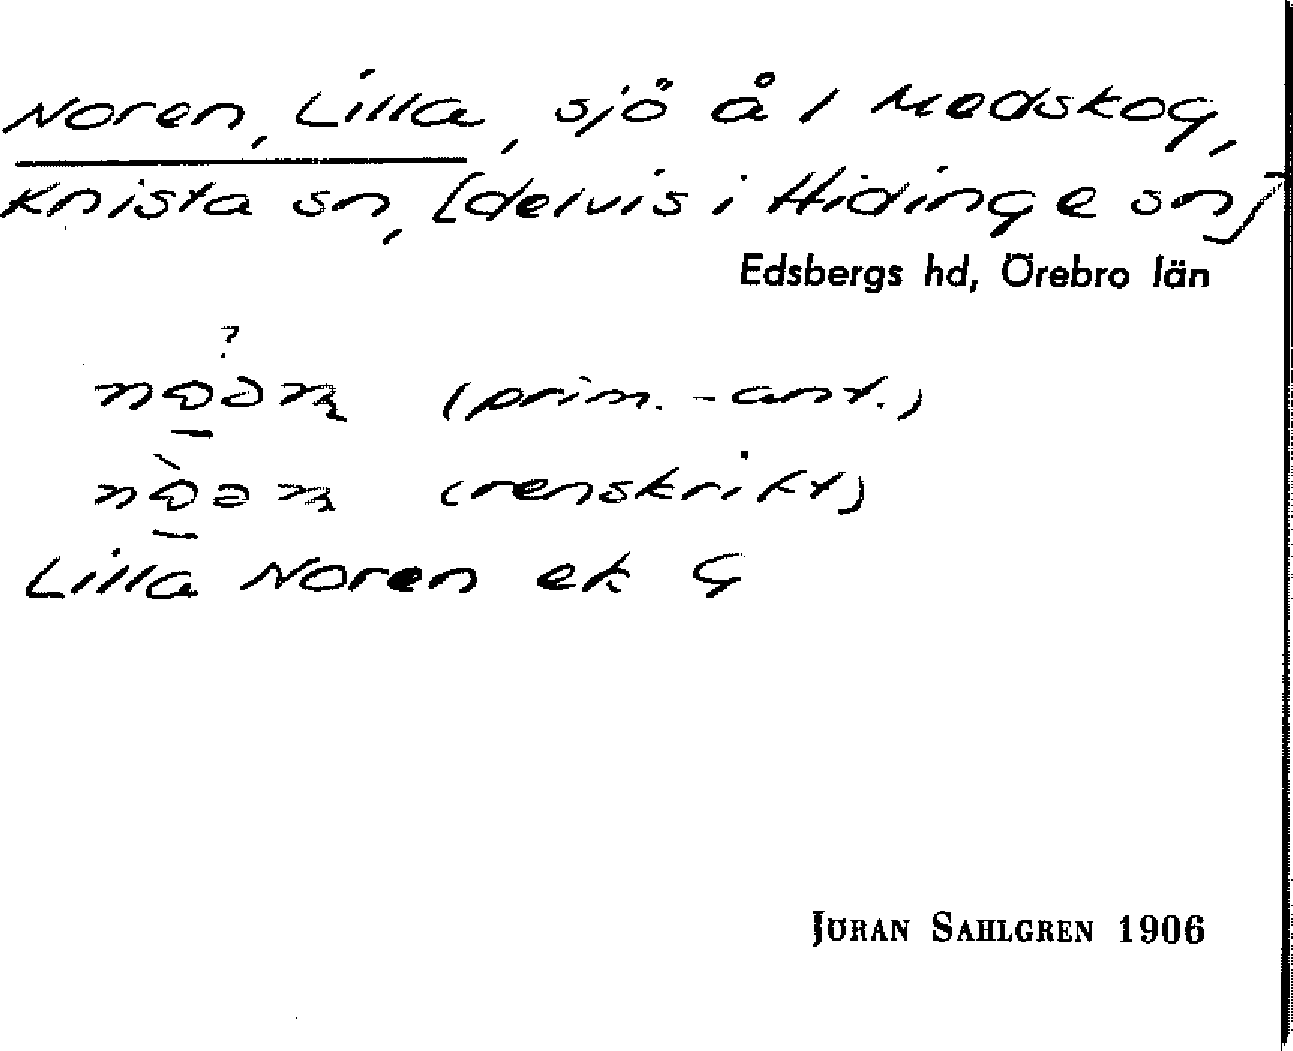 Noren, Lilla, sjö å / Medskog,
Knista sn, [delvis i Hidinge sn]
Edsbergs hd, Örebro län
?
(prim.-ant.)
(renskrift)
Lilla Noren ek G
JÖRAN SAHLGREN 1906